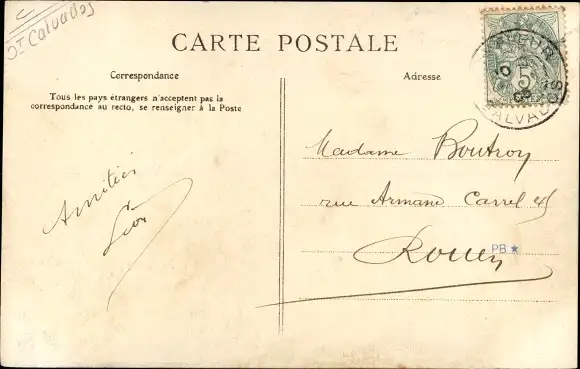 Dt Calvados
CARTE POSTALE
Correspondance
Adresse
Tous les pays étrangers n'acceptent pas la
correspondance au recto, se renseigner à la Poste
5c
08
CALVADOS
Amitiés
Léon
Madame Boutroy
rue Armand Carrel 45
Rouen
PB